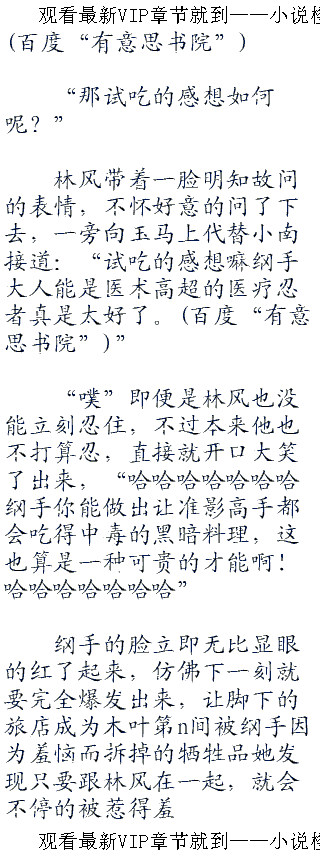 观看最新VIP章节就到——小说检
(百度“有意思书院”)
“那试吃的感想如何
呢？”
林风带着一脸明知故问
的表情，不怀好意的问了下
去，一旁向玉马上代替小南
接道：“试吃的感想嘛纲手
大人能是医术高超的医疗忍
者真是太好了。(百度“有意
思书院”)”
“噗”即便是林风也没
能立刻忍住，不过本来他也
不打算忍，直接就开口大笑
了出来，“哈哈哈哈哈哈哈
纲手你能做出让准影高手都
会吃得中毒的黑暗料理，这
也算是一种可贵的才能啊！
哈哈哈哈哈哈哈”
纲手的脸立即无比显眼
的红了起来，仿佛下一刻就
要完全爆发出来，让脚下的
旅店成为木叶第n间被纲手因
为羞恼而拆掉的牺牲品她发
现只要跟林风在一起，就会
不停的被惹得羞
观看最新VIP章节就到——小说检